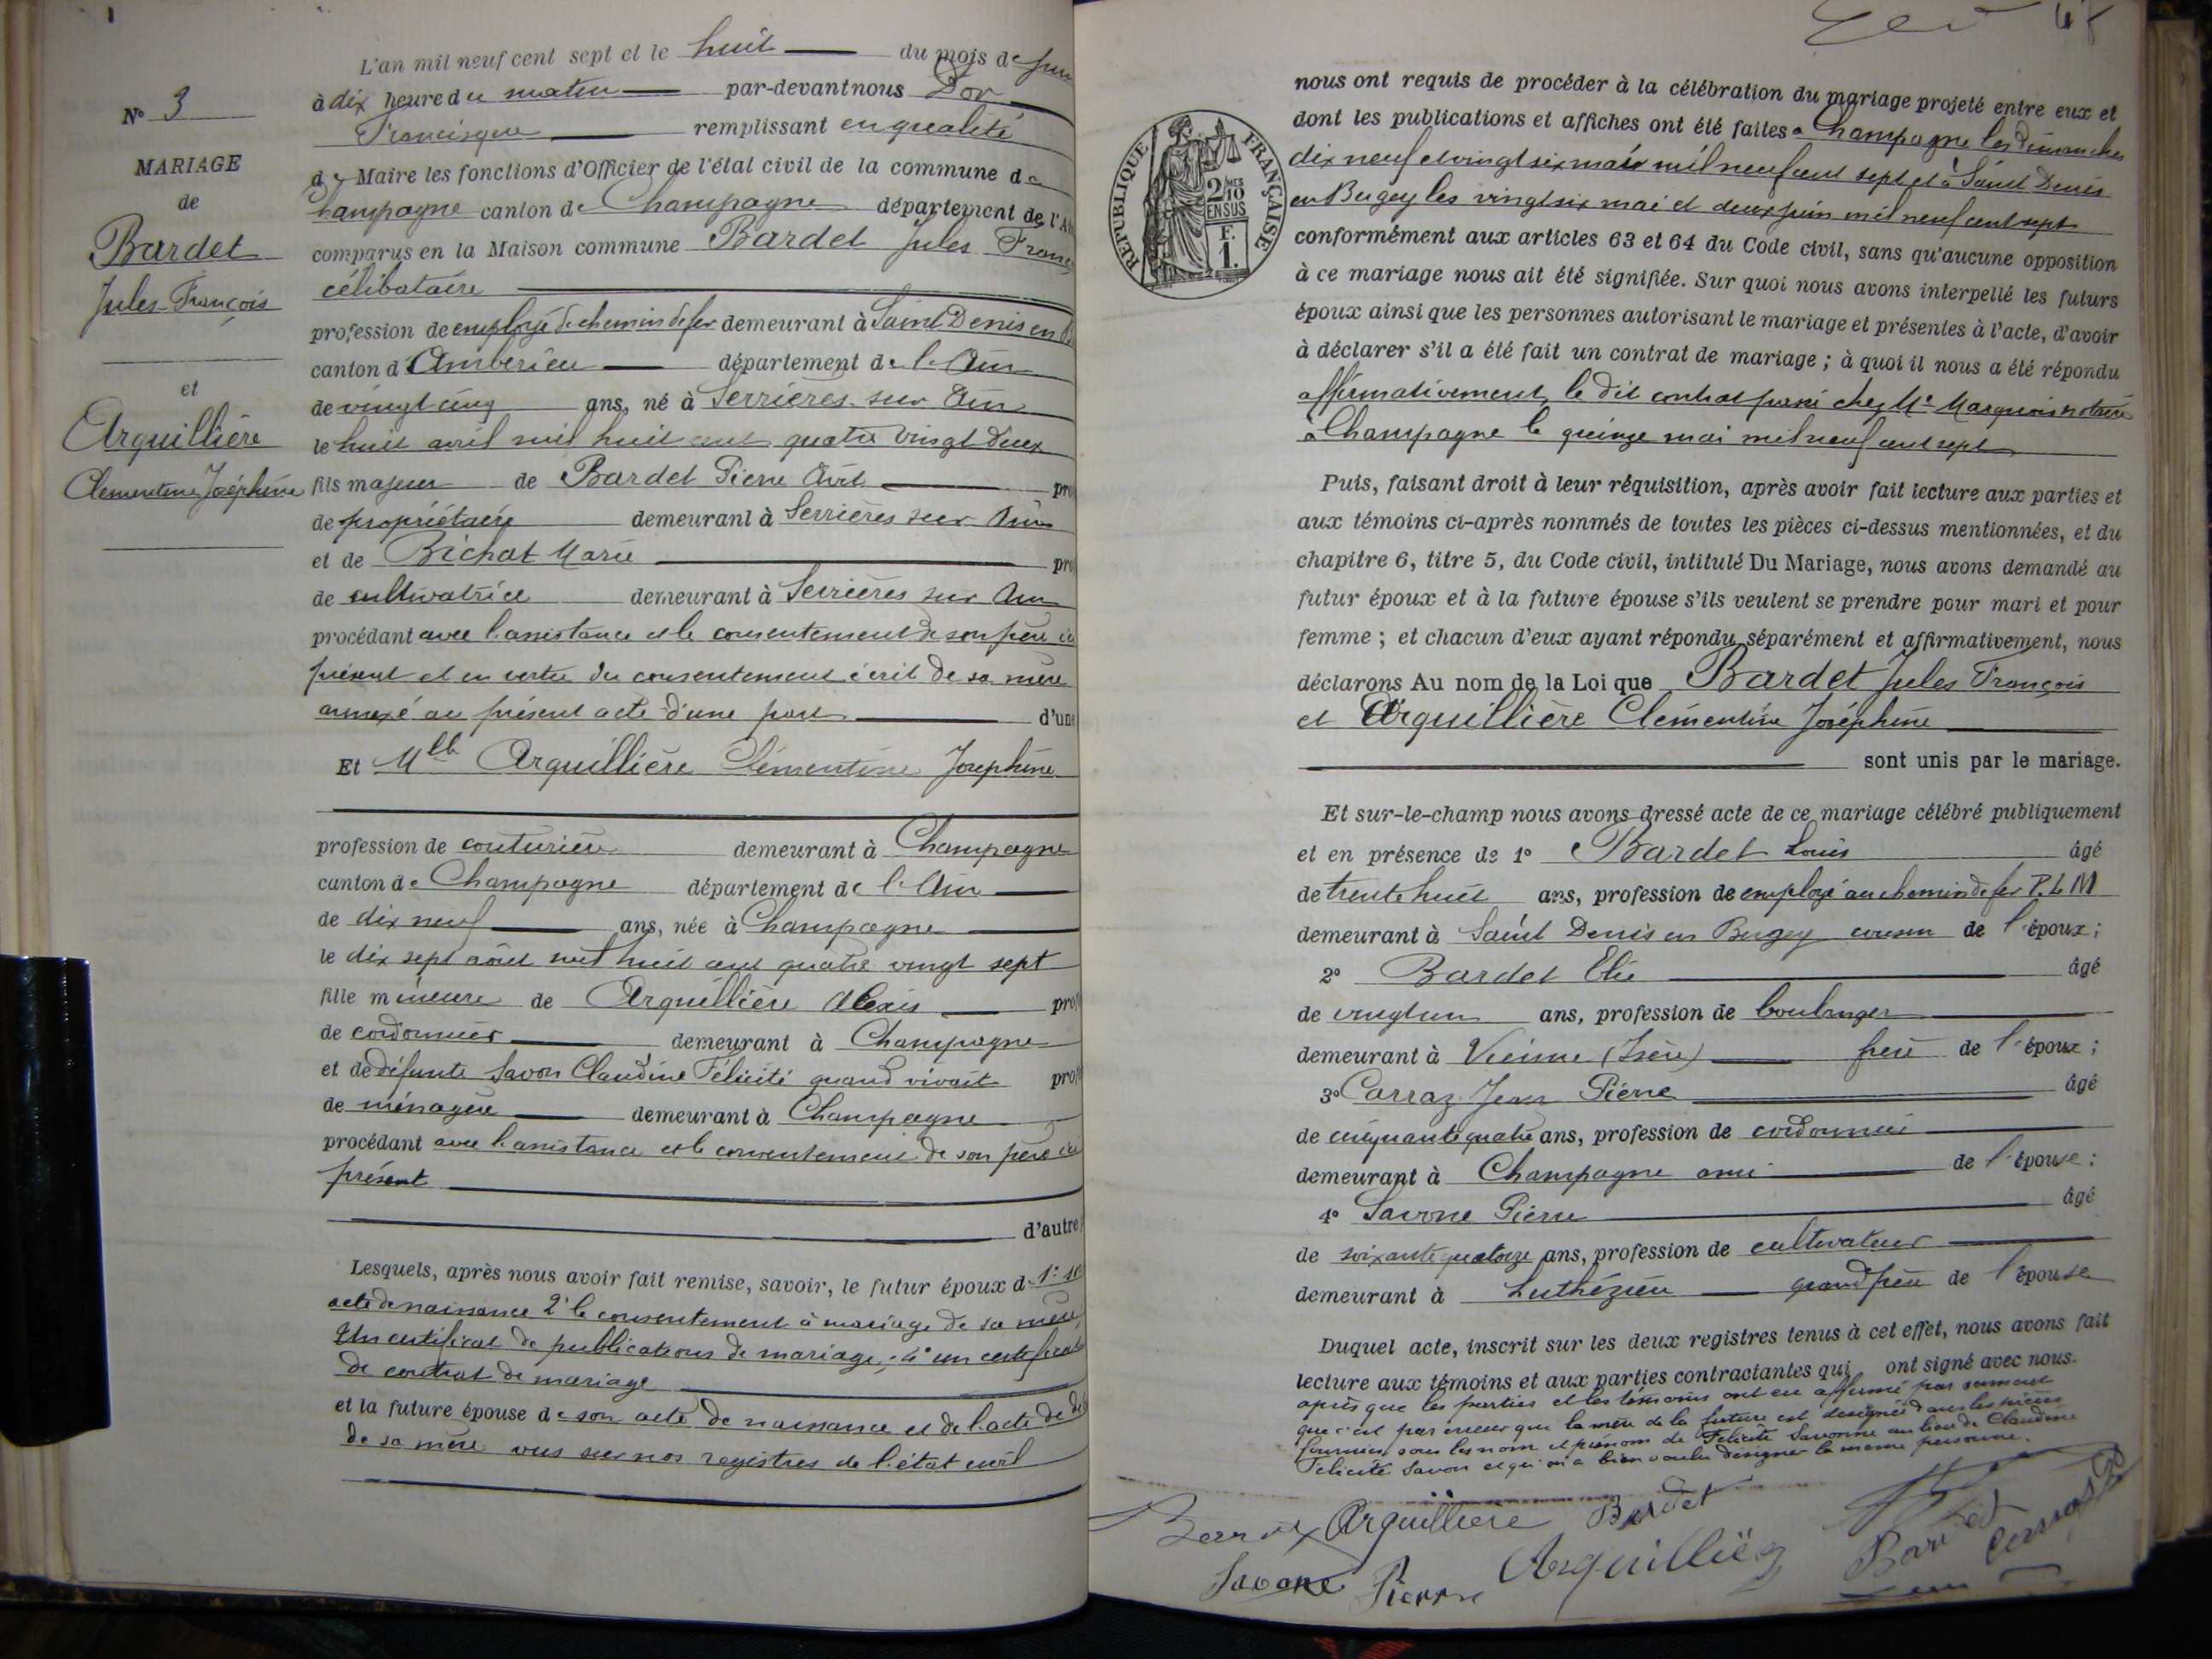 N° 3
MARIAGE
de
Bardet
Jules-François
et
Arquillière
Clementine Joséphine
L'an mil neuf cent sept et le huit du mois de juin
à dix heure du matin par-devant nous Dor
Francisque remplissant en qualité
de Maire les fonctions d'Officier de l'état civil de la commune de
Champagne canton de Champagne département de l'Ain
comparus en la Maison commune Bardet Jules Franç
célibataire
profession de employé de chemin de fer demeurant à Saint Denis en B
canton d'Ambérieu département de l'Ain
de vingt cinq ans, né à Serrières sur Ain
le huit avril mil huit cent quatre vingt deux
fils majeur de Bardet Pierre Avit pro
de propriétaire demeurant à Serrières sur Ain
et de Bichat Marie pro
de cultivatrice demeurant à Serrières sur Ain
procédant avec l'assistance et le consentement de son père ici
présent et en vertu du consentement écrit de sa mère
annexé au présent acte d'une part d'une
Et Mlle Arquillière Clémentine Joséphine
profession de couturière demeurant à Champagne
canton de Champagne département de l'Ain
de dix neuf ans, née à Champagne
le dix sept août mil huit cent quatre vingt sept
fille mineure de Arquillière Alexis prof
de cordonnier demeurant à Champagne
et de défunte Savon Claudine Félicité quand vivait prof
de ménagère demeurant à Champagne
procédant avec l'assistance et le consentement de son père ici
présent
d'autre
Lesquels, après nous avoir fait remise, savoir, le futur époux de 1° so
acte de naissance 2° le consentement à mariage de sa mère
Un certificat de publications de mariage, 4° un certificat
de contrat de mariage
et la future épouse de son acte de naissance et de l'acte de dé
de sa mère vus sur nos registres de l'état civil
RÉPUBLIQUE FRANÇAISE
2/10
MES
EN SUS
F.
1.
nous ont requis de procéder à la célébration du mariage projeté entre eux et
dont les publications et affiches ont été faites à Champagne les dimanches
dix neuf et vingt six mai mil neuf cent sept et à Saint Denis
en Bugey les vingt six mai et deux juin mil neuf cent sept
conformément aux articles 63 et 64 du Code civil, sans qu'aucune opposition
à ce mariage nous ait été signifiée. Sur quoi nous avons interpellé les futurs
époux ainsi que les personnes autorisant le mariage et présentes à l'acte, d'avoir
à déclarer s'il a été fait un contrat de mariage ; à quoi il nous a été répondu
affirmativement, le dit contrat passé chez Me Marquois notaire
à Champagne le quinze mai mil neuf cent sept
Puis, faisant droit à leur réquisition, après avoir fait lecture aux parties et
aux témoins ci-après nommés de toutes les pièces ci-dessus mentionnées, et du
chapitre 6, titre 5, du Code civil, intitulé Du Mariage, nous avons demandé au
futur époux et à la future épouse s'ils veulent se prendre pour mari et pour
femme ; et chacun d'eux ayant répondu séparément et affirmativement, nous
déclarons Au nom de la Loi que Bardet Jules François
et Arquillière Clémentine Joséphine
sont unis par le mariage.
Et sur-le-champ nous avons dressé acte de ce mariage célébré publiquement
et en présence de 1° Bardet Louis âgé
de trente huit ans, profession de employé au chemin de fer P.L.M
demeurant à Saint Denis en Bugey cousin de l'époux ;
2° Bardet Elie âgé
de vingt un ans, profession de boulanger
demeurant à Vienne (Isère) frère de l'époux ;
3° Carraz Jean Pierre âgé
de cinquante quatre ans, profession de cordonnier
demeurant à Champagne ami de l'épouse ;
4° Savone Pierre âgé
de soixante quatorze ans, profession de cultivateur
demeurant à Luthézieu grand père de l'épouse
Duquel acte, inscrit sur les deux registres tenus à cet effet, nous avons fait
lecture aux témoins et aux parties contractantes qui ont signé avec nous.
après que les parties et les témoins ont eu affirmé par serment
que c'est par erreur que la mère de la future est désignée dans les pièces
fournies, sous les nom et prénom de Félicité Savonne au lieu de Claudine
Félicité Savon et qu'on a bien voulu désigner la même personne.
Arquilliere Bardet
Savone Pierre Arquillièr Bardet Carraz